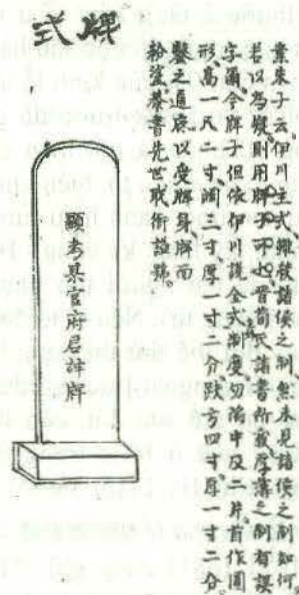 牌式
朱子云伊川主式殺諸侯之制然未見諸侯之制如何
若以為疑則用牌子可也晉簡氏譜書所載厚薄之制有誤
字爾今牌子但依伊川議式制度勿陷中及二片首作圓
形高一尺二寸濶三寸厚一寸二分趺方四寸厚一寸二分
鑿之通底以受牌身牌面
粉塗書先世職銜諱號
顯考某官府君神牌